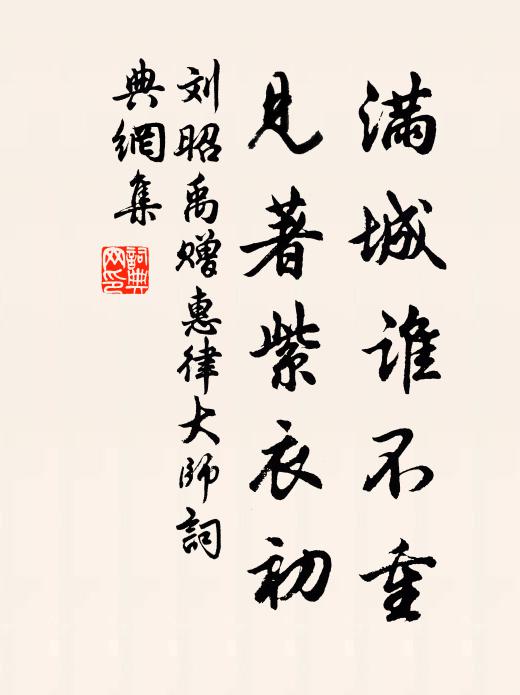 满城谁不重
见著紫衣初
刘昭禹赠惠律大师词
典網集
詞典
网印